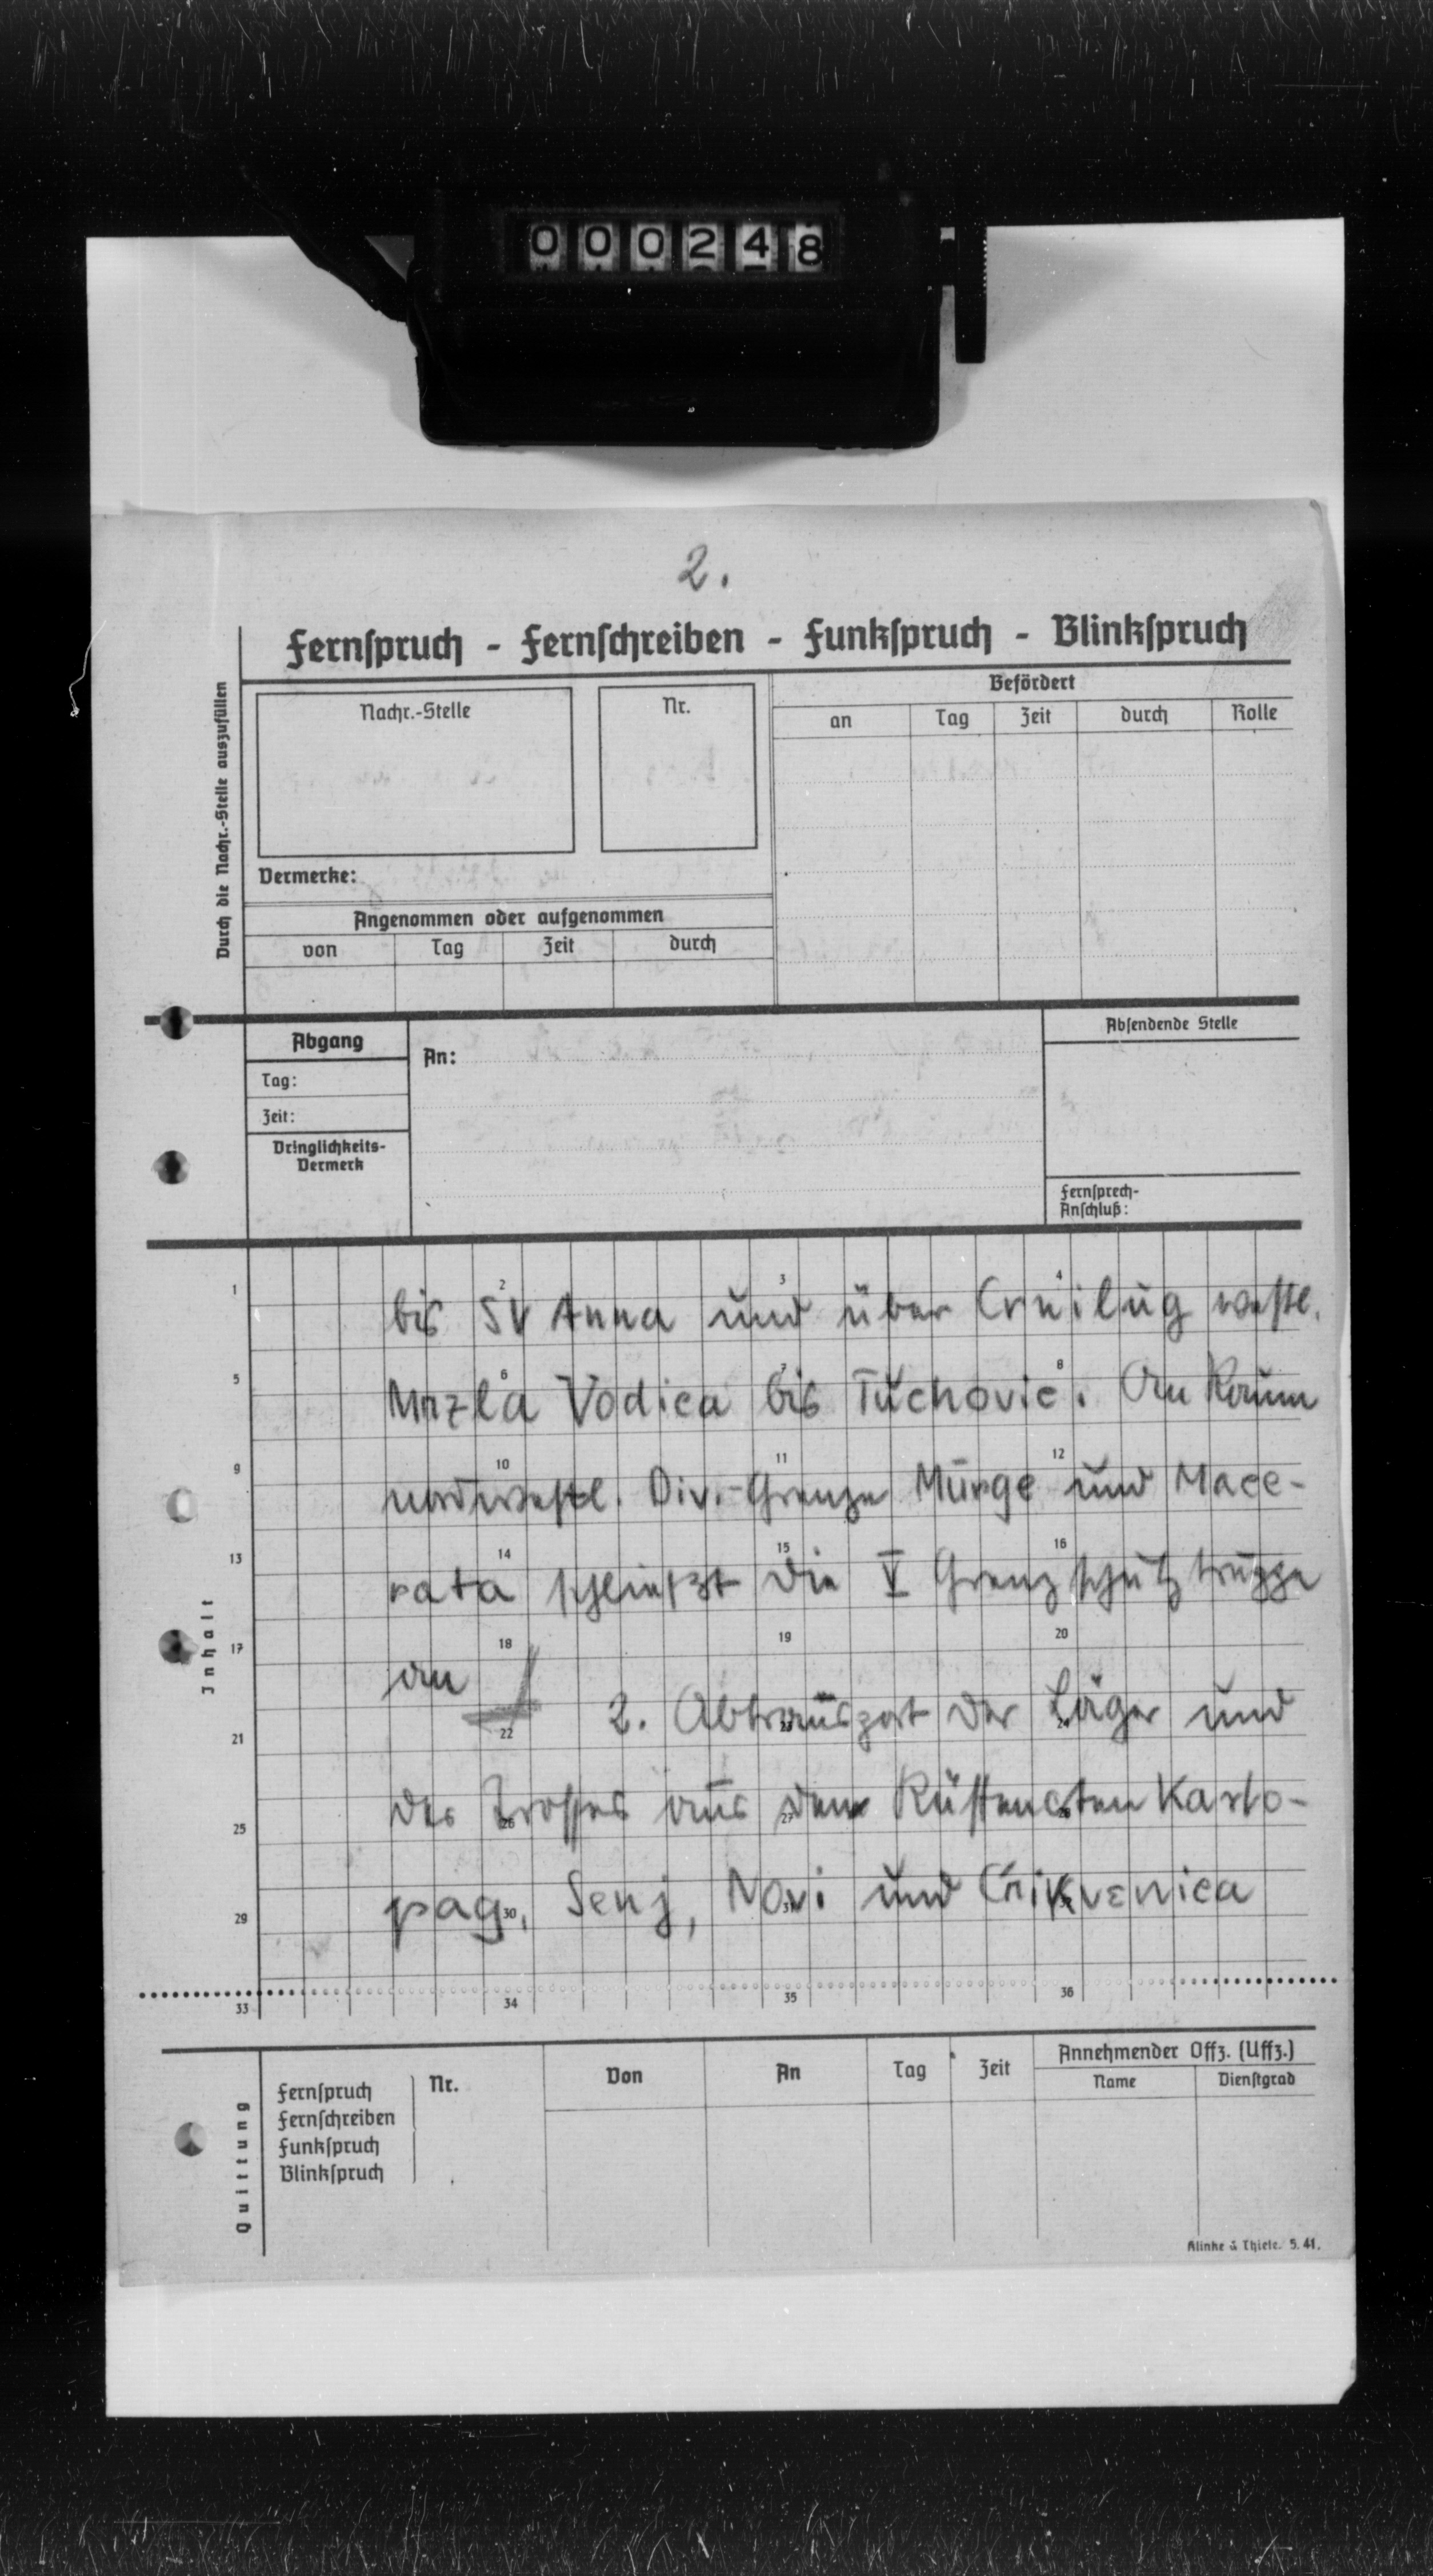 000248
2.
Fernspruch - Fernschreiben - Funkspruch - Blinkspruch
Durch die Nachr.-Stelle auszufüllen
Nachr.-Stelle
Nr.
Befördert
an
Tag
Zeit
durch
Rolle
Vermerke:
Angenommen oder aufgenommen
von
Tag
Zeit
durch
Abgang
Tag:
Zeit:
Dringlichkeits-
Vermerk
An:
Absendende Stelle
Fernsprech-
Anschluß:
Inhalt
1 2 3 4
bis SV Anna und über Crnilug westl.
5 6 7 8
Mrzla Vodica bis Tuchovic. An Raum
9 10 11 12
nordwestl. Div.-Grenze Murge und Mace-
13 14 15 16
rata schließt die V Grenzschutztruppe
17 18 19 20
an
2. Abtransport der Läger und
21 22 23 24
des Trosses aus den Küstenorten Karlo-
25 26 27 28
pag, Senj, Novi und Crikvenica
29 30 31
33 34 35 36
Quittung
Fernspruch
Fernschreiben
Funkspruch
Blinkspruch
Nr.
Von
An
Tag
Zeit
Annehmender Offz. (Uffz.)
Name
Dienstgrad
Klinke & Thiele. 5. 41.